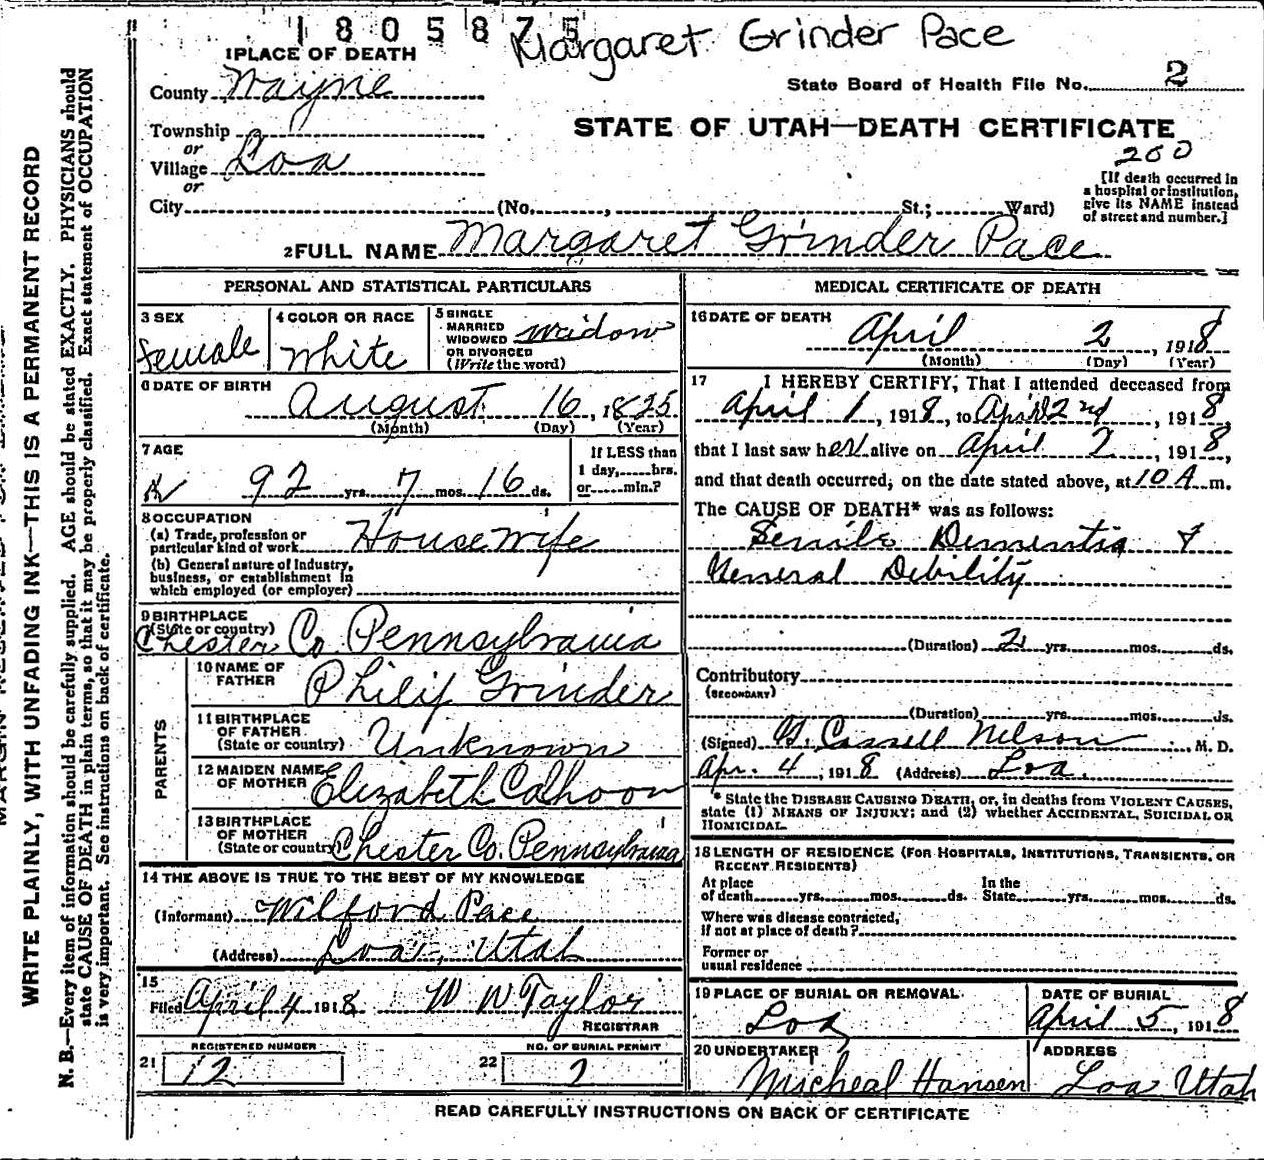 1805875 Margaret Grinder Pace
1 PLACE OF DEATH
County Wayne
State Board of Health File No. 2
Township
or
Village Loa
or
STATE OF UTAH—DEATH CERTIFICATE
260
[If death occurred in
a hospital or institution,
give its NAME instead
of street and number.]
City (No. , St.; Ward)
2 FULL NAME Margaret Grinder Pace
PERSONAL AND STATISTICAL PARTICULARS
3 SEX
Female
4 COLOR OR RACE
White
5 SINGLE
MARRIED
WIDOWED
OR DIVORCED
(Write the word)
Widow
6 DATE OF BIRTH
August 16, 1825
(Month) (Day) (Year)
7 AGE
92 yrs. 7 mos. 16 ds.
If LESS than
1 day, hrs.
or min.?
8 OCCUPATION
(a) Trade, profession or
particular kind of work Housewife
(b) General nature of industry,
business, or establishment in
which employed (or employer)
9 BIRTHPLACE
(State or country)
Chester Co. Pennsylvania
PARENTS
10 NAME OF
FATHER
Philip Grinder
11 BIRTHPLACE
OF FATHER
(State or country) Unknown
12 MAIDEN NAME
OF MOTHER Elizabeth Calhoon
13 BIRTHPLACE
OF MOTHER
(State or country) Chester Co. Pennsylvania
14 THE ABOVE IS TRUE TO THE BEST OF MY KNOWLEDGE
(Informant) Wilford Pace
(Address) Loa, Utah
15
Filed April 4 1918 W W Taylor
REGISTRAR
REGISTERED NUMBER
21 12
NO. OF BURIAL PERMIT
22 2
MEDICAL CERTIFICATE OF DEATH
16 DATE OF DEATH
April 2, 1918
(Month) (Day) (Year)
17 I HEREBY CERTIFY, That I attended deceased from
April 1, 1918, to April 2nd, 1918
that I last saw her alive on April 2, 1918,
and that death occurred, on the date stated above, at 10 A m.
The CAUSE OF DEATH* was as follows:
Senile Dementia &
General Debility
(Duration) 2 yrs. mos. ds.
Contributory
(SECONDARY)
(Duration) yrs. mos. ds.
(Signed) Nelson M. D.
Apr. 4, 1918 (Address) Loa.
* State the DISEASE CAUSING DEATH, or, in deaths from VIOLENT CAUSES,
state (1) MEANS OF INJURY; and (2) whether ACCIDENTAL, SUICIDAL OR
HOMICIDAL.
18 LENGTH OF RESIDENCE (FOR HOSPITALS, INSTITUTIONS, TRANSIENTS, OR
RECENT RESIDENTS)
At place
of death yrs. mos. ds.
In the
State yrs. mos. ds.
Where was disease contracted,
if not at place of death?
Former or
usual residence
19 PLACE OF BURIAL OR REMOVAL
Loa
DATE OF BURIAL
April 5, 1918
20 UNDERTAKER
Micheal Hansen
ADDRESS
Loa Utah
READ CAREFULLY INSTRUCTIONS ON BACK OF CERTIFICATE
WRITE PLAINLY, WITH UNFADING INK—THIS IS A PERMANENT RECORD
N. B.—Every item of information should be carefully supplied. AGE should be stated EXACTLY. PHYSICIANS should
state CAUSE OF DEATH in plain terms, so that it may be properly classified. Exact statement of OCCUPATION
is very important. See instructions on back of certificate.